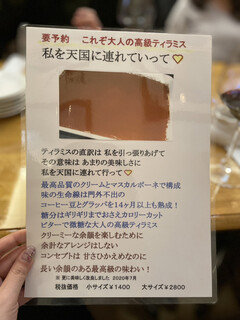 要予約　これぞ大人の高級ティラミス
私を天国に連れていって♡
ティラミスの直訳は 私を引っ張りあげて
その意味は あまりの美味しさに
私を天国に連れて行って♡
最高品質のクリームとマスカルポーネで構成
味の生命線は門外不出の
コーヒー豆とグラッパを14ヶ月以上も熟成！
糖分はギリギリまでおさえカロリーカット
ビターで微糖な大人の高級ティラミス
クリーミーな余韻を楽しむために
余計なアレンジはしない
コンセプトは 甘さひかえめなのに
長い余韻のある最高級の味わい！
※ 更に美味しく改良しました 2020年7月
税抜価格　小サイズ￥1400　大サイズ￥2800